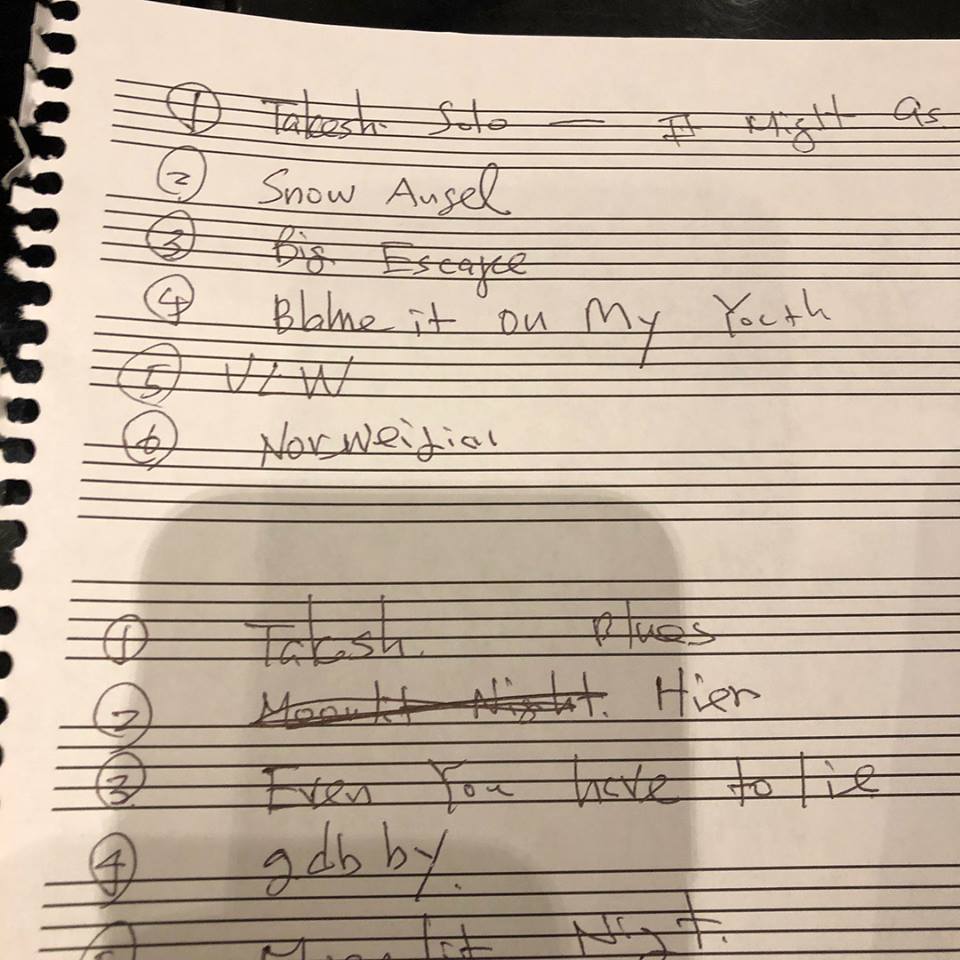 ① Takeshi Solo — It Might as
② Snow Angel
③ Big Escape
④ Blame it on My Youth
⑤ VLW
⑥ Norweigian
① Takeshi Blues
② Moonlit Night. Hier
③ Even You have to lie
④ gdb by.
Moonlit Night.